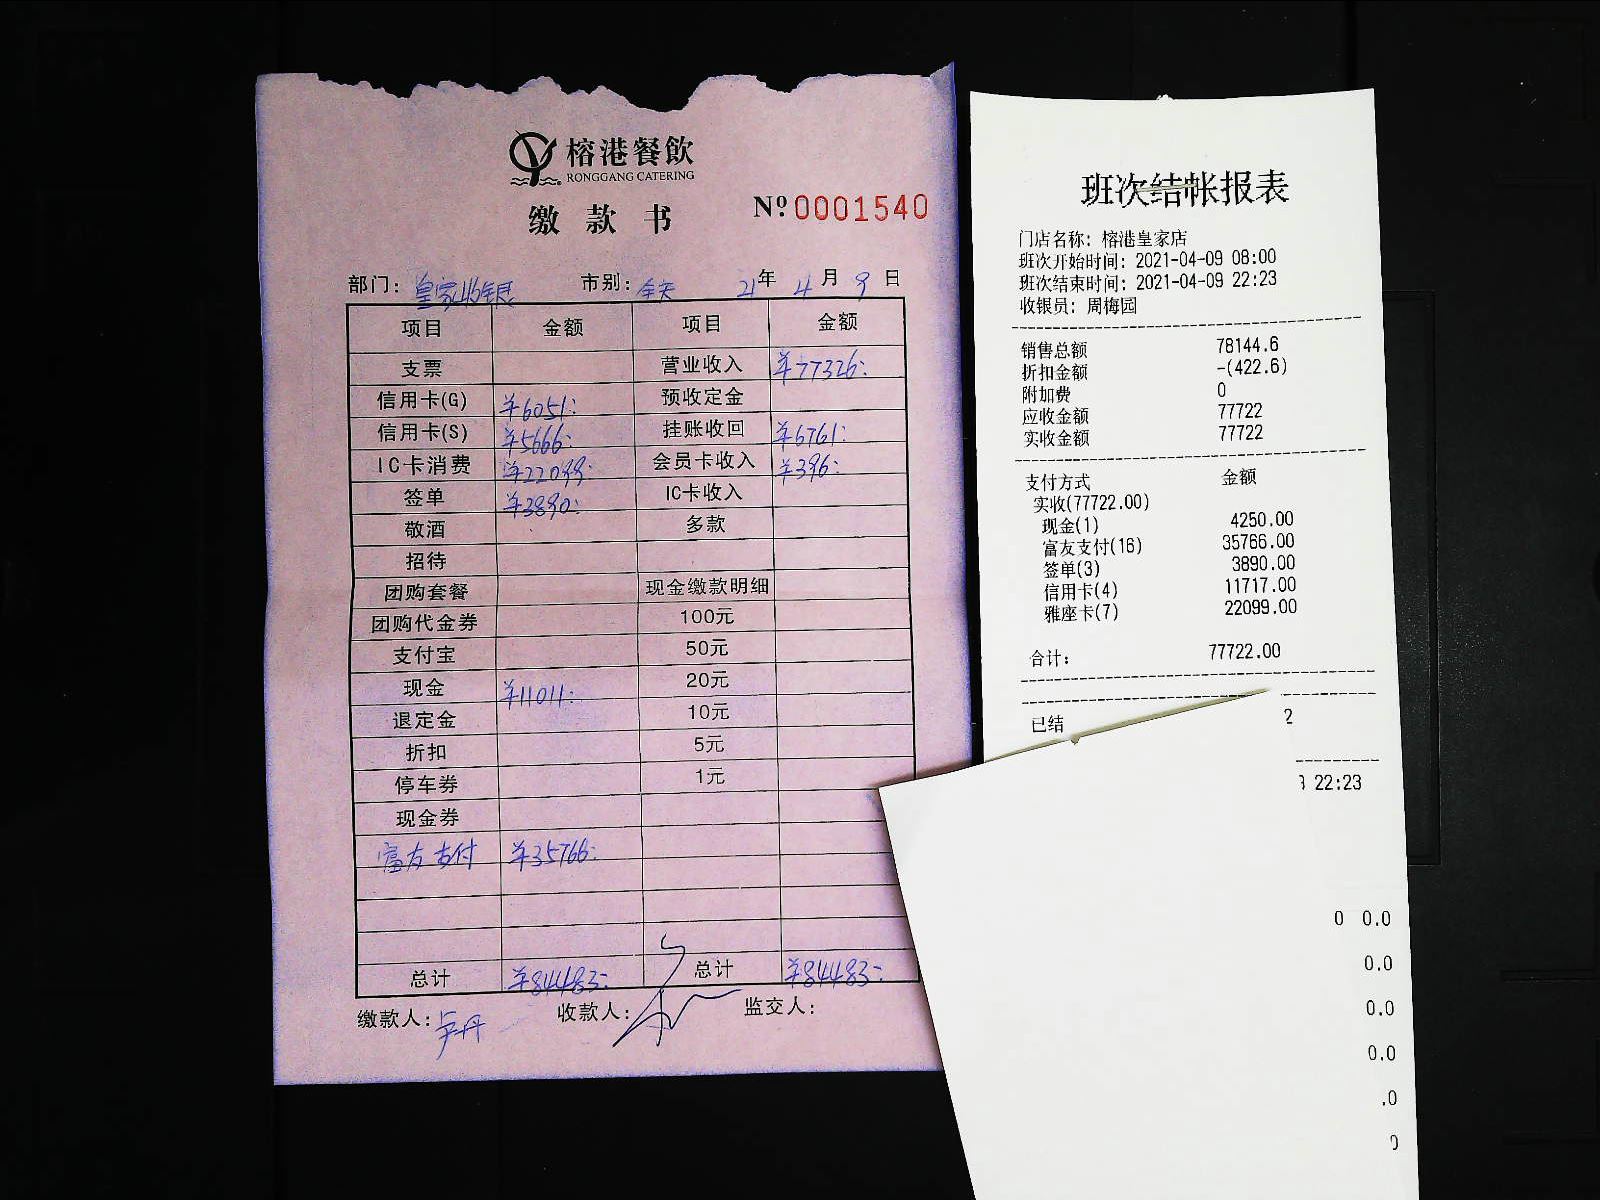 榕港餐飲
RONGGANG CATERING
缴款书
Nº 0001540
部门: 皇家收银 市别: 全天 21年 4月 9日
项目 金额 项目 金额
支票 营业收入 ¥77326:
信用卡(G) ¥6051: 预收定金
信用卡(S) ¥5666: 挂账收回 ¥6761:
IC卡消费 ¥22099: 会员卡收入 ¥396:
签单 ¥3890: IC卡收入
敬酒 多款
招待
团购套餐 现金缴款明细
团购代金券 100元
支付宝 50元
现金 ¥11011: 20元
退定金 10元
折扣 5元
停车券 1元
现金券
富友支付 ¥35766:
总计 ¥84483: 总计 ¥84483:
缴款人: 尹丹 收款人: 监交人:
班次结帐报表
门店名称: 榕港皇家店
班次开始时间: 2021-04-09 08:00
班次结束时间: 2021-04-09 22:23
收银员: 周梅园
销售总额 78144.6
折扣金额 -(422.6)
附加费 0
应收金额 77722
实收金额 77722
支付方式 金额
实收(77722.00)
现金(1) 4250.00
富友支付(16) 35766.00
签单(3) 3890.00
信用卡(4) 11717.00
雅座卡(7) 22099.00
合计: 77722.00
已结 2
22:23
0 0.0
0.0
0.0
0.0
.0